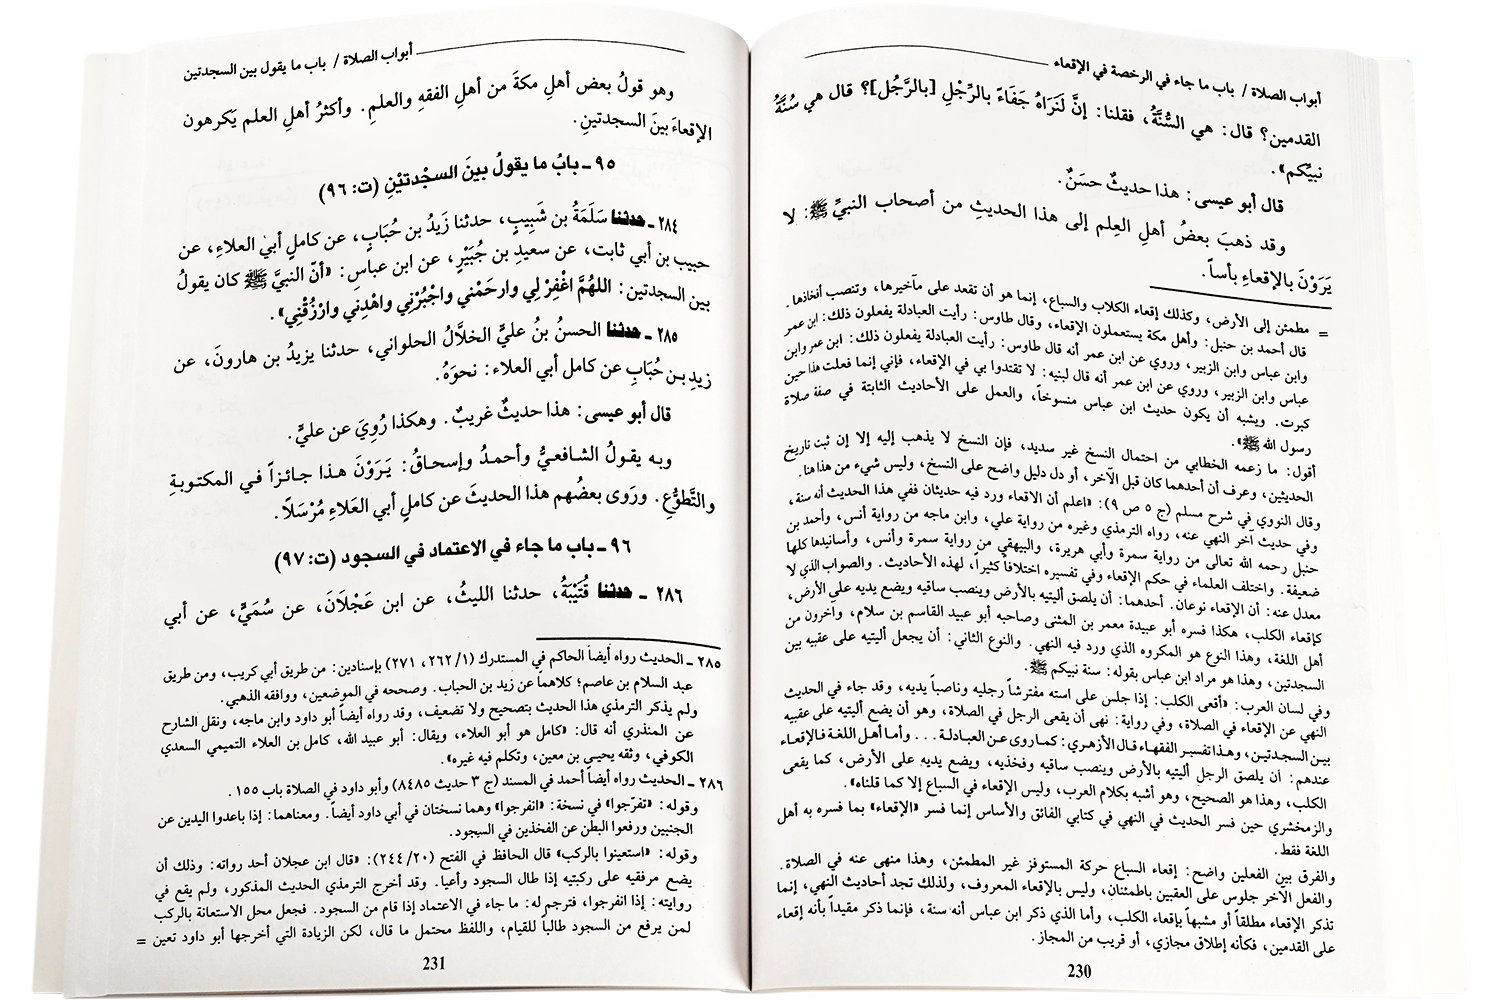 أبواب الصلاة / باب ما جاء في الرخصة في الإقعاء
القدمين؟ قال: هي السُّنَّةُ، فقلنا: إنَّ لَنَرَاهُ جَفَاءً بالرِّجْلِ [بالرَّجُل]؟ قال هي سُنَّةُ
نبيِّكم».
قال أبو عيسى: هذا حديثٌ حسَنٌ.
وقد ذهبَ بعضُ أهلِ العِلم إلى هذا الحديثِ من أصحاب النبيِّ ﷺ: لا
يَرَوْنَ بالإقعاءِ بأساً.
= مطمئن إلى الأرض، وكذلك إقعاء الكلاب والسباع، إنما هو أن تقعد على مآخيرها، وتنصب أفخاذها.
قال أحمد بن حنبل: وأهل مكة يستعملون الإقعاء، وقال طاوس: رأيت العبادلة يفعلون ذلك: ابن عمر
وابن عباس وابن الزبير، وروي عن ابن عمر أنه قال طاوس: رأيت العبادلة يفعلون ذلك: ابن عمر وابن
عباس وابن الزبير، وروي عن ابن عمر أنه قال لبنيه: لا تقتدوا بي في الإقعاء، فإني إنما فعلت هذا حين
كبرت. ويشبه أن يكون حديث ابن عباس منسوخاً، والعمل على الأحاديث الثابتة في صفة صلاة
رسول الله ﷺ».
أقول: ما زعمه الخطابي من احتمال النسخ غير سديد، فإن النسخ لا يذهب إليه إلا إن ثبت تاريخ
الحديثين، وعرف أن أحدهما كان قبل الآخر، أو دل دليل واضح على النسخ، وليس شيء من هذا هنا.
وقال النووي في شرح مسلم (ج ٥ ص ٩): «اعلم أن الاقعاء ورد فيه حديثان ففي هذا الحديث أنه سنة،
وفي حديث آخر النهي عنه، رواه الترمذي وغيره من رواية علي، وابن ماجه من رواية أنس، وأحمد بن
حنبل رحمه الله تعالى من رواية سمرة وأبي هريرة، والبيهقي من رواية سمرة وأنس، وأسانيدها كلها
ضعيفة. واختلف العلماء في حكم الإقعاء وفي تفسيره اختلافاً كثيراً، لهذه الأحاديث. والصواب الذي لا
معدل عنه: أن الإقعاء نوعان. أحدهما: أن يلصق أليتيه بالأرض وينصب ساقيه ويضع يديه على الأرض،
كإقعاء الكلب، هكذا فسره أبو عبيدة معمر بن المثنى وصاحبه أبو عبيد القاسم بن سلام، وآخرون من
أهل اللغة، وهذا النوع هو المكروه الذي ورد فيه النهي. والنوع الثاني: أن يجعل أليتيه على عقبيه بين
السجدتين، وهذا هو مراد ابن عباس بقوله: سنة نبيكم ﷺ.
وفي لسان العرب: «أقعى الكلب: إذا جلس على استه مفترشاً رجليه وناصباً يديه، وقد جاء في الحديث
النهي عن الإقعاء في الصلاة، وفي رواية: نهى أن يقعى الرجل في الصلاة، وهو أن يضع أليتيه على عقبيه
بين السجدتين، وهذا تفسير الفقهاء قال الأزهري: كما روى عن العبادلة... وأما أهل اللغة فالإقعاء
عندهم: أن يلصق الرجل أليتيه بالأرض وينصب ساقيه وفخذيه، ويضع يديه على الأرض، كما يقعى
الكلب، وهذا هو الصحيح، وهو أشبه بكلام العرب، وليس الإقعاء في السباع إلا كما قلناه».
والزمخشري حين فسر الحديث في النهي في كتابي الفائق والأساس إنما فسر «الإقعاء» بما فسره به أهل
اللغة فقط.
والفرق بين الفعلين واضح: إقعاء السباع حركة المستوفز غير المطمئن، وهذا منهى عنه في الصلاة.
والفعل الآخر جلوس على العقبين باطمئنان، وليس بالإقعاء المعروف، ولذلك تجد أحاديث النهي، إنما
تذكر الإقعاء مطلقاً أو مشبهاً بإقعاء الكلب، وأما الذي ذكر ابن عباس أنه سنة، فإنما ذكر مقيداً بأنه إقعاء
على القدمين، فكأنه إطلاق مجازي، أو قريب من المجاز.
230
أبواب الصلاة / باب ما يقول بين السجدتين
وهو قولُ بعض أهلِ مكةَ من أهلِ الفقهِ والعلمِ. وأكثرُ أهلِ العلم يَكرهون
الإقعاءَ بينَ السجدتينِ.
٩٥ ـ بابُ ما يقولُ بينَ السجْدتيْنِ (ت: ٩٦)
٢٨٤ ـ حدثنا سَلَمَةُ بن شَبِيبٍ، حدثنا زَيدُ بن حُبَابٍ، عن كاملٍ أبي العلاءِ، عن
حبيب بن أبي ثابت، عن سعيدِ بن جُبَيْرٍ، عن ابن عباسٍ: «أنّ النبيَّ ﷺ كان يقولُ
بين السجدتين: اللهُمَّ اغْفِرْ لِي وارحَمْني واجْبُرْنِي واهْدِني وارْزُقْنِي».
٢٨٥ ـ حدثنا الحسنُ بنُ عليٍّ الخلاَّل الحلواني، حدثنا يزيدُ بن هارونَ، عن
زيدِ بن حُبَابِ عن كامل أبي العلاء: نحوَهُ.
قال أبو عيسى: هذا حديثٌ غريبٌ. وهكذا رُوِيَ عن عليٍّ.
وبه يقولُ الشافعيُّ وأحمدُ وإسحاقُ: يَرَوْنَ هذا جائزاً في المكتوبةِ
والتَّطوُّعِ. ورَوى بعضُهم هذا الحديثَ عن كاملٍ أبي العَلاءِ مُرْسَلاً.
٩٦ ـ باب ما جاء في الاعتماد في السجود (ت: ٩٧)
٢٨٦ ـ حدثنا قُتَيْبَةُ، حدثنا الليثُ، عن ابن عَجْلَانَ، عن سُمَيٍّ، عن أبي
٢٨٥ ـ الحديث رواه أيضاً الحاكم في المستدرك (٢٦٢/١، ٢٧١) بإسنادين: من طريق أبي كريب، ومن طريق
عبد السلام بن عاصم؛ كلاهما عن زيد بن الحباب. وصححه في الموضعين، ووافقه الذهبي.
ولم يذكر الترمذي هذا الحديث بتصحيح ولا تضعيف، وقد رواه أيضاً أبو داود وابن ماجه، ونقل الشارح
عن المنذري أنه قال: «كامل هو أبو العلاء، ويقال: أبو عبيد الله، كامل بن العلاء التميمي السعدي
الكوفي، وثقه يحيى بن معين، وتكلم فيه غيره».
٢٨٦ ـ الحديث رواه أيضاً أحمد في المسند (ج ٣ حديث ٨٤٨٥) وأبو داود في الصلاة باب ١٥٥.
وقوله: «تفرّجوا» في نسخة: «انفرجوا» وهما نسختان في أبي داود أيضاً. ومعناهما: إذا باعدوا اليدين عن
الجنبين ورفعوا البطن عن الفخذين في السجود.
وقوله: «استعينوا بالركب» قال الحافظ في الفتح (٢٤٤/٢٠): «قال ابن عجلان أحد رواته: وذلك أن
يضع مرفقيه على ركبتيه إذا طال السجود وأعيا. وقد أخرج الترمذي الحديث المذكور، ولم يقع في
روايته: إذا انفرجوا، فترجم له: ما جاء في الاعتماد إذا قام من السجود. فجعل محل الاستعانة بالركب
لمن يرفع من السجود طالباً للقيام، واللفظ محتمل ما قال، لكن الزيادة التي أخرجها أبو داود تعين =
231